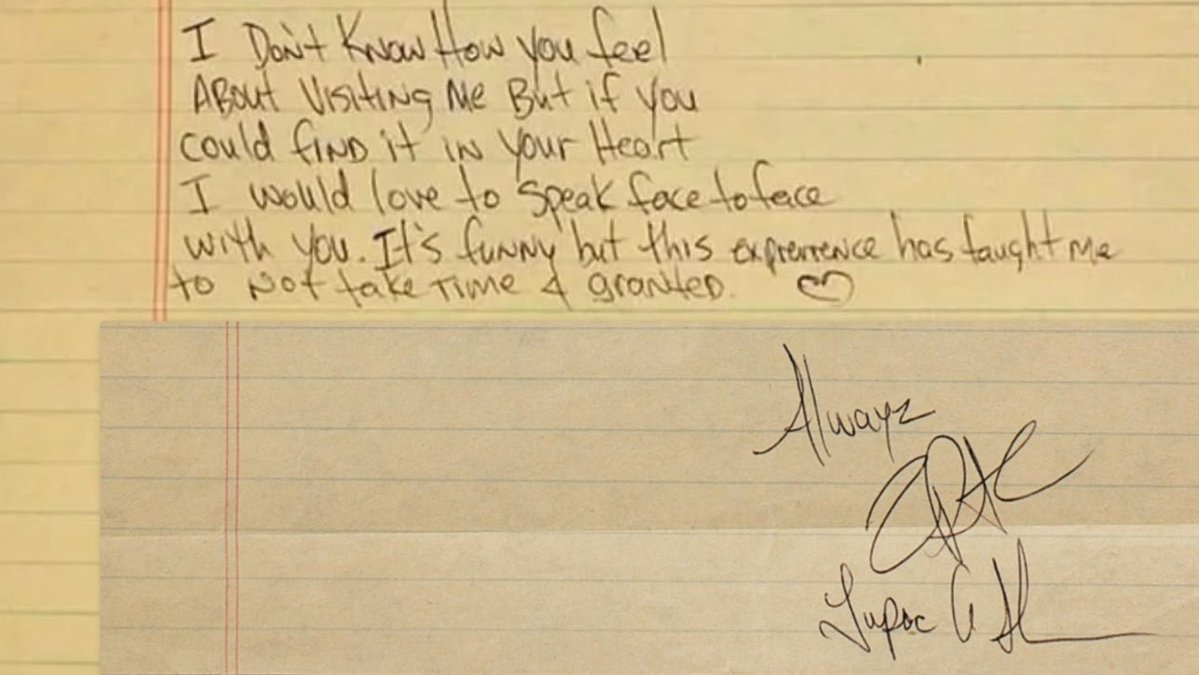 I Don't Know How you feel
About Visiting Me But if you
could find it in your Heart
I would love to speak face to face
with you. It's funny but this exprerrence has taught me
to not take time 4 granted. ♡
Alwayz
Tupac A Sh